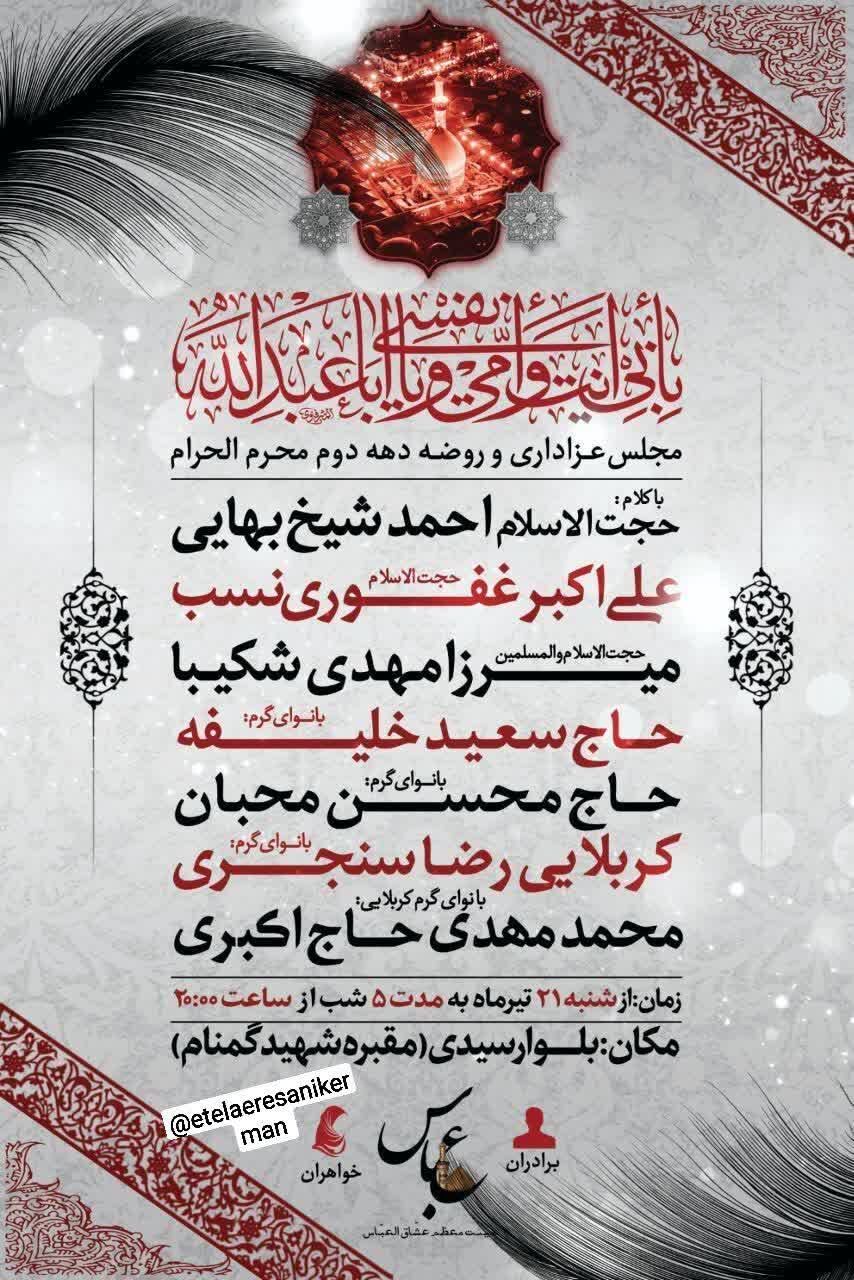 بِأَبِي أَنتَ وَأُمِّي وَنَفْسِي يَا أَبَاعَبدِاللّه
مجلس عزاداری و روضه دهه دوم محرم الحرام
با کلام:
حجت الاسلام احمد شیخ بهایی
حجت الاسلام
علی اکبر غفوری نسب
حجت الاسلام والمسلمین
میرزا مهدی شکیبا
بانوای گرم:
حاج سعید خلیفه
بانوای گرم:
حاج محسن محبان
بانوای گرم:
کربلایی رضا سنجری
بانوای گرم کربلایی:
محمد مهدی حاج اکبری
زمان: از شنبه ۲۱ تیرماه به مدت ۵ شب از ساعت ۲۰:۰۰
مکان: بلوار سیدی (مقبره شهید گمنام)
@etelaeresaniker
man
برادران
عباس
خواهران
معظم عشاق العبّاس